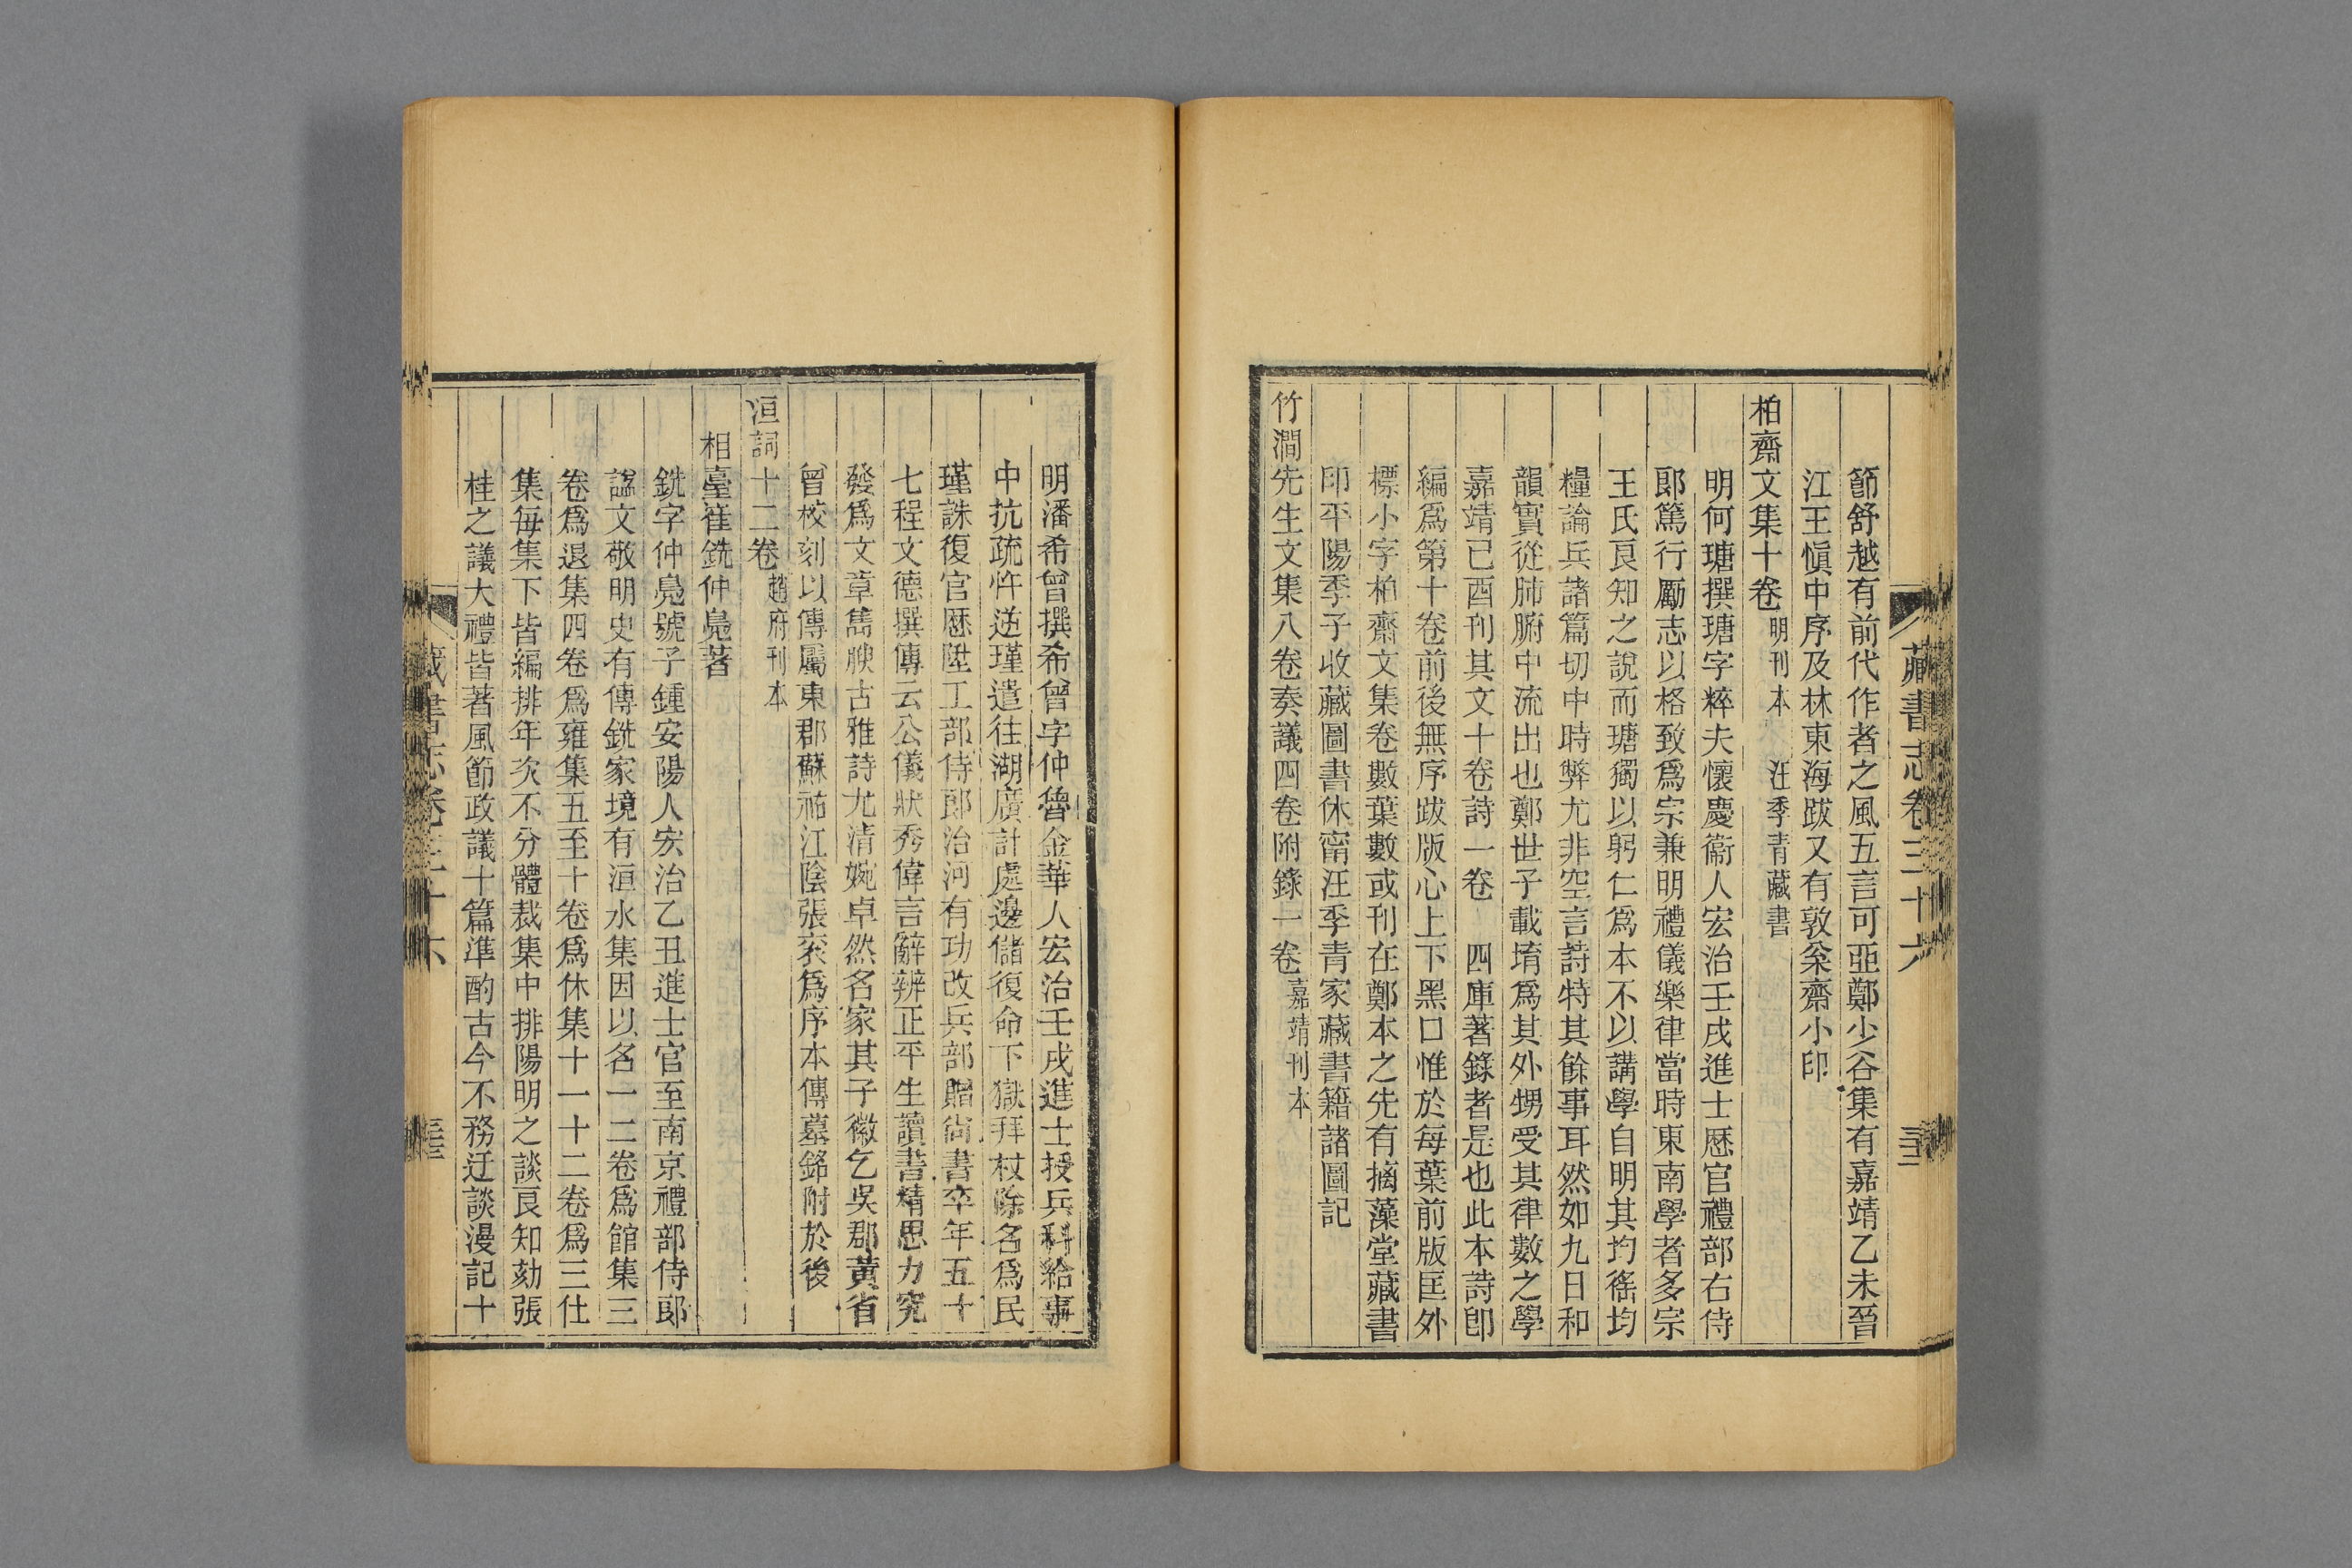 藏書志卷三十六
節舒越有前代作者之風五言可亞鄭少谷集有嘉靖乙未晉
江王愼中序及林東海跋又有敦㳟齋小印
柏齋文集十卷 明刊本 汪季青藏書
明何瑭撰瑭字粹夫懷慶衞人宏治壬戌進士歷官禮部右侍
郎篤行勵志以格致爲宗兼明禮儀樂律當時東南學者多宗
王氏良知之說而瑭獨以躬仁爲本不以講學自明其均徭均
糧論兵諸篇切中時弊尤非空言詩特其餘事耳然如九日和
韻實從肺腑中流出也鄭世子載堉爲其外甥受其律數之學
嘉靖己酉刊其文十卷詩一卷 四庫著錄者是也此本詩卽
編爲第十卷前後無序跋版心上下黑口惟於每葉前版匡外
標小字柏齋文集卷數葉數或刊在鄭本之先有摘藻堂藏書
印平陽季子收藏圖書休甯汪季青家藏書籍諸圖記
竹澗先生文集八卷奏議四卷附錄一卷 嘉靖刊本
明潘希曾撰希曾字仲魯金華人宏治壬戌進士授兵科給事
中抗疏忤逆瑾遣往湖廣計處邊儲復命下獄拜杖除名爲民
瑾誅復官歷陞工部侍郎治河有功改兵部贈尙書卒年五十
七程文德撰傳云公儀狀秀偉言辭辨正平生讀書精思力究
發爲文章雋腴古雅詩尤清婉卓然名家其子徽乞吳郡黃省
曾校刻以傳屬東郡蘇祐江陰張袞爲序本傳墓銘附於後
洹詞十二卷 趙府刊本
相臺崔銑仲鳧著
銑字仲鳧號子鍾安陽人宏治乙丑進士官至南京禮部侍郎
諡文敏明史有傳銑家境有洹水集因以名一二卷爲館集三
卷爲退集四卷爲雍集五至十卷爲休集十一十二卷爲三仕
集每集下皆編排年次不分體裁集中排陽明之談良知劾張
桂之議大禮皆著風節政議十篇準酌古今不務迂談漫記十